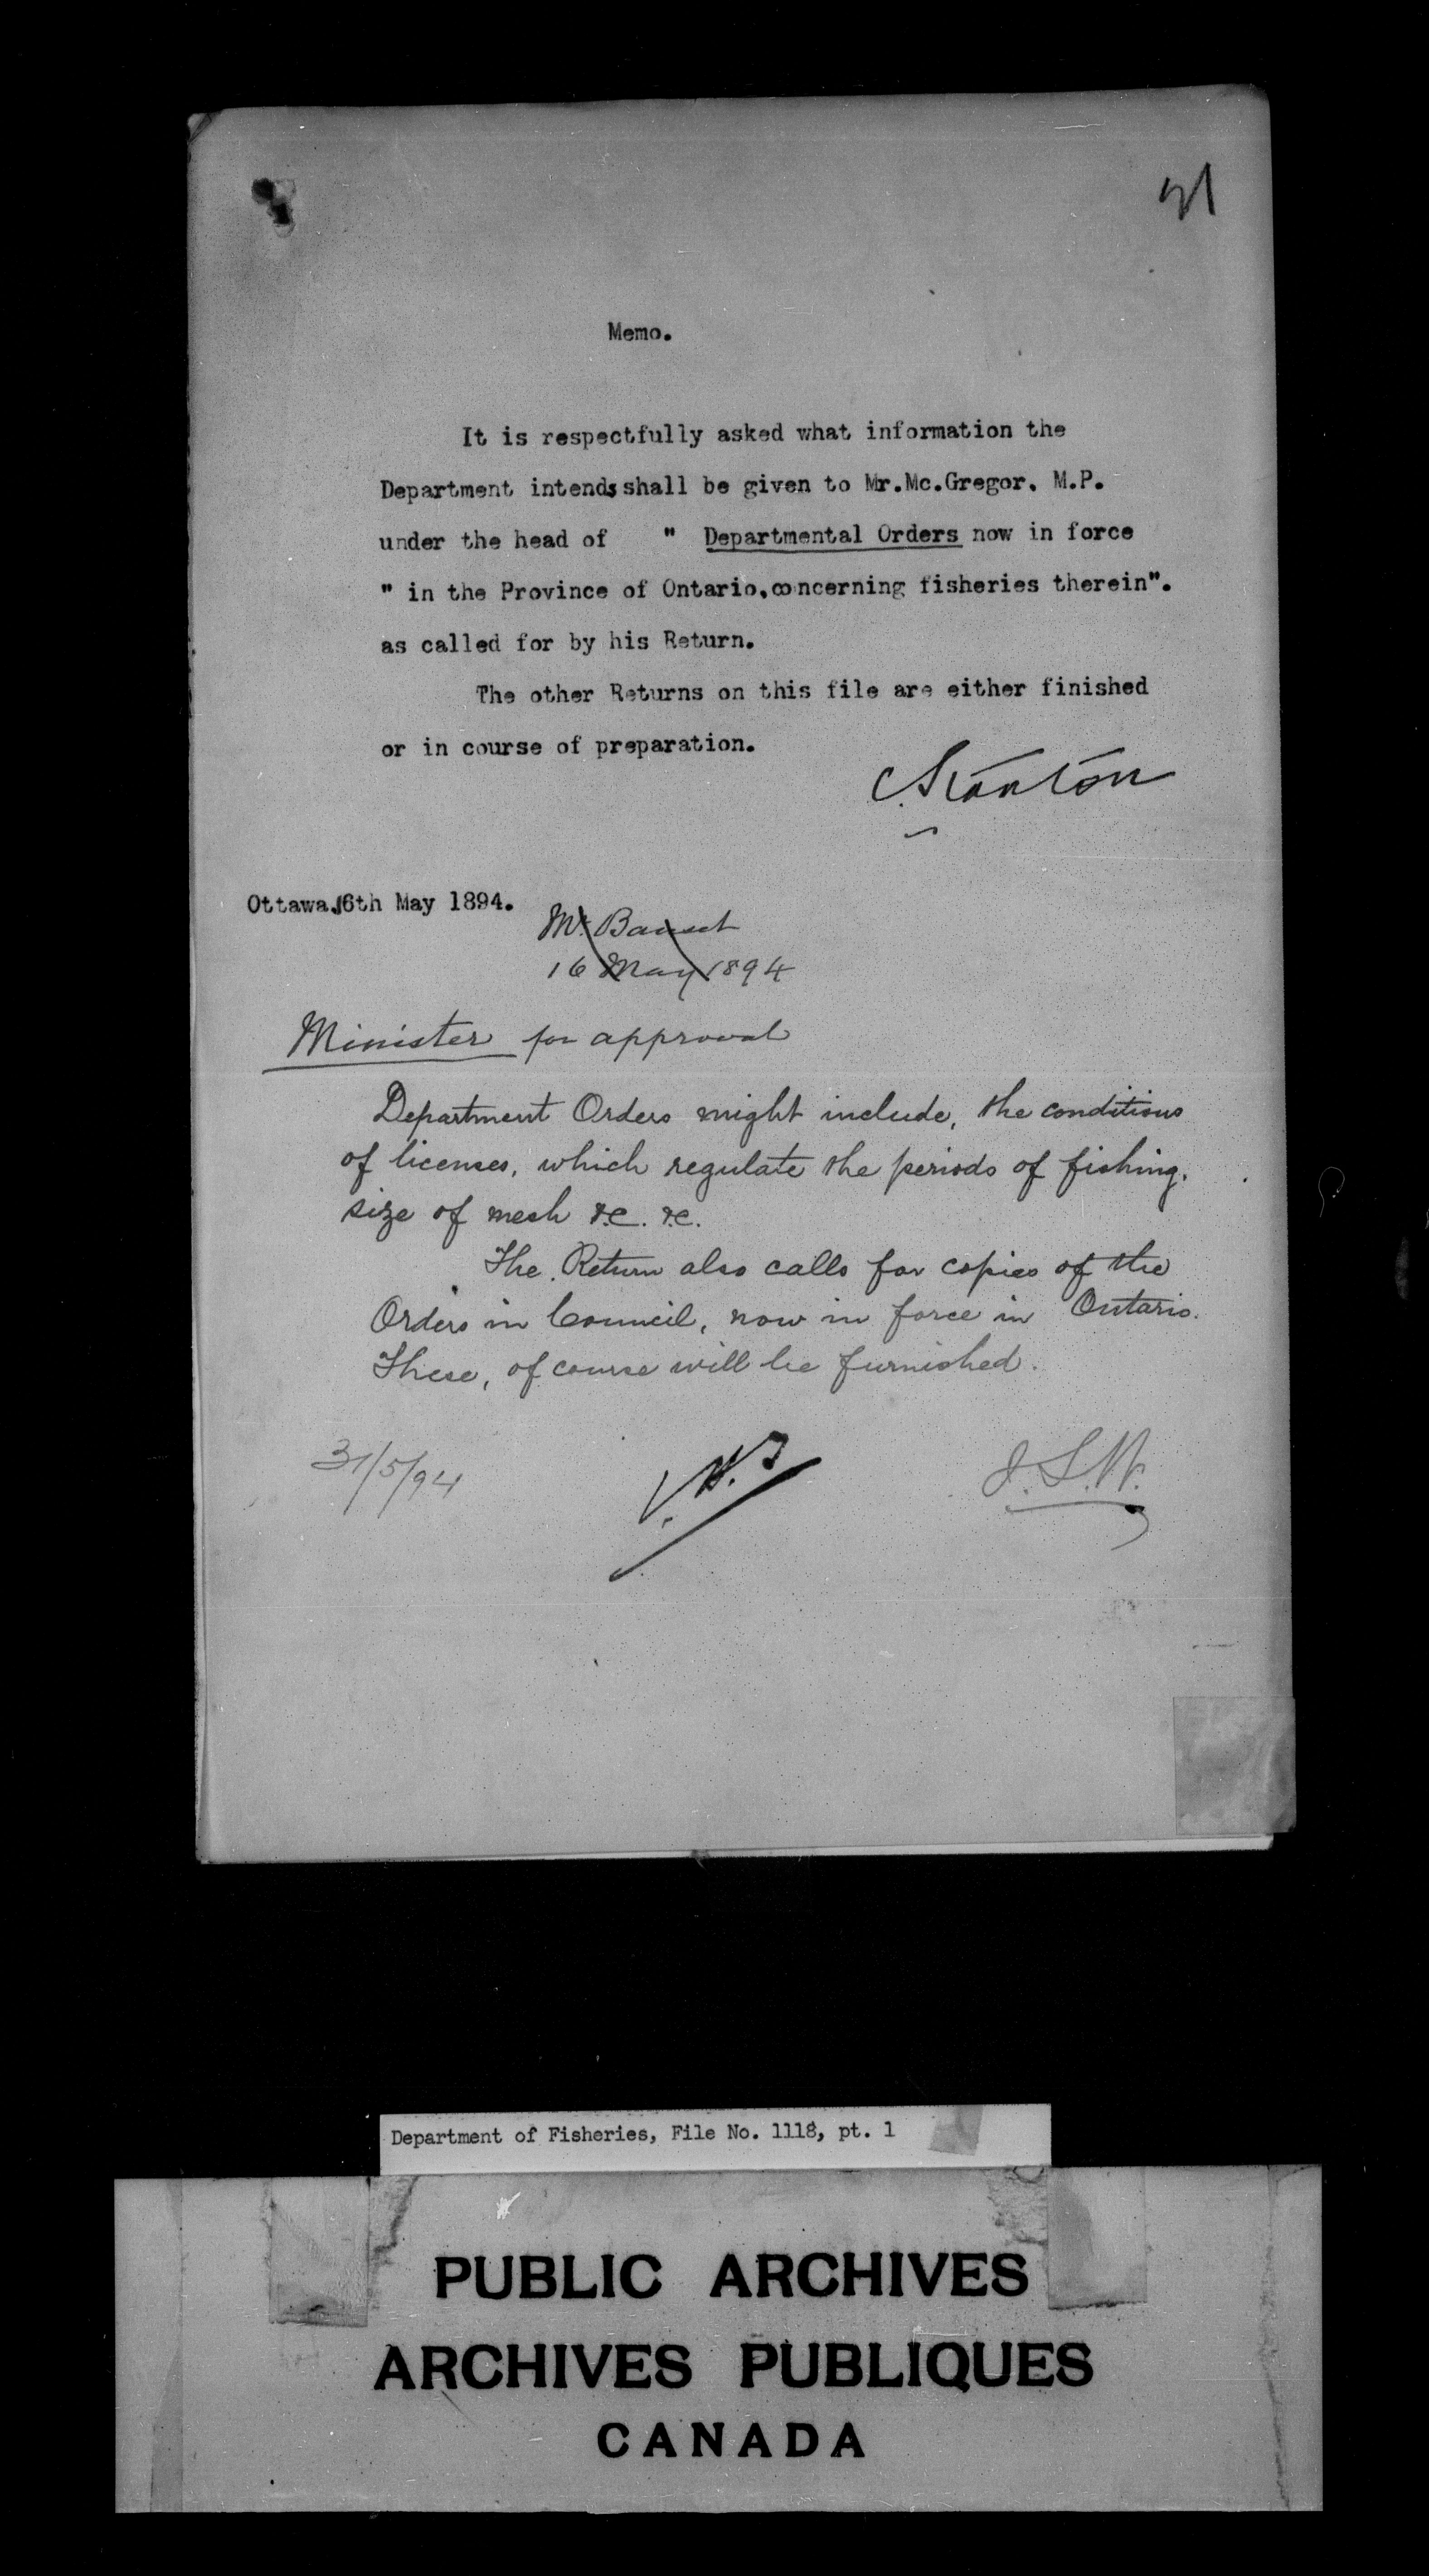 Memo.
It is respectfully asked what information the
Department intends shall be given to Mr.Mc.Gregor. M.P.
under the head of " Departmental Orders now in force
" in the Province of Ontario, concerning fisheries therein".
as called for by his Return.
The other Returns on this file are either finished
or in course of preparation.
C. Stanton
Ottawa,16th May 1894.
Mr.
16 May 1894
Minister for approval
Department Orders might include, the conditions
of licenses, which regulate the periods of fishing,
size of mesh &c. &c.
The Return also calls for copies of the
Orders in Council, now in force in Ontario.
These, of course will be furnished.
31/5/94
Department of Fisheries, File No. 1118, pt. 1
PUBLIC ARCHIVES
ARCHIVES PUBLIQUES
CANADA